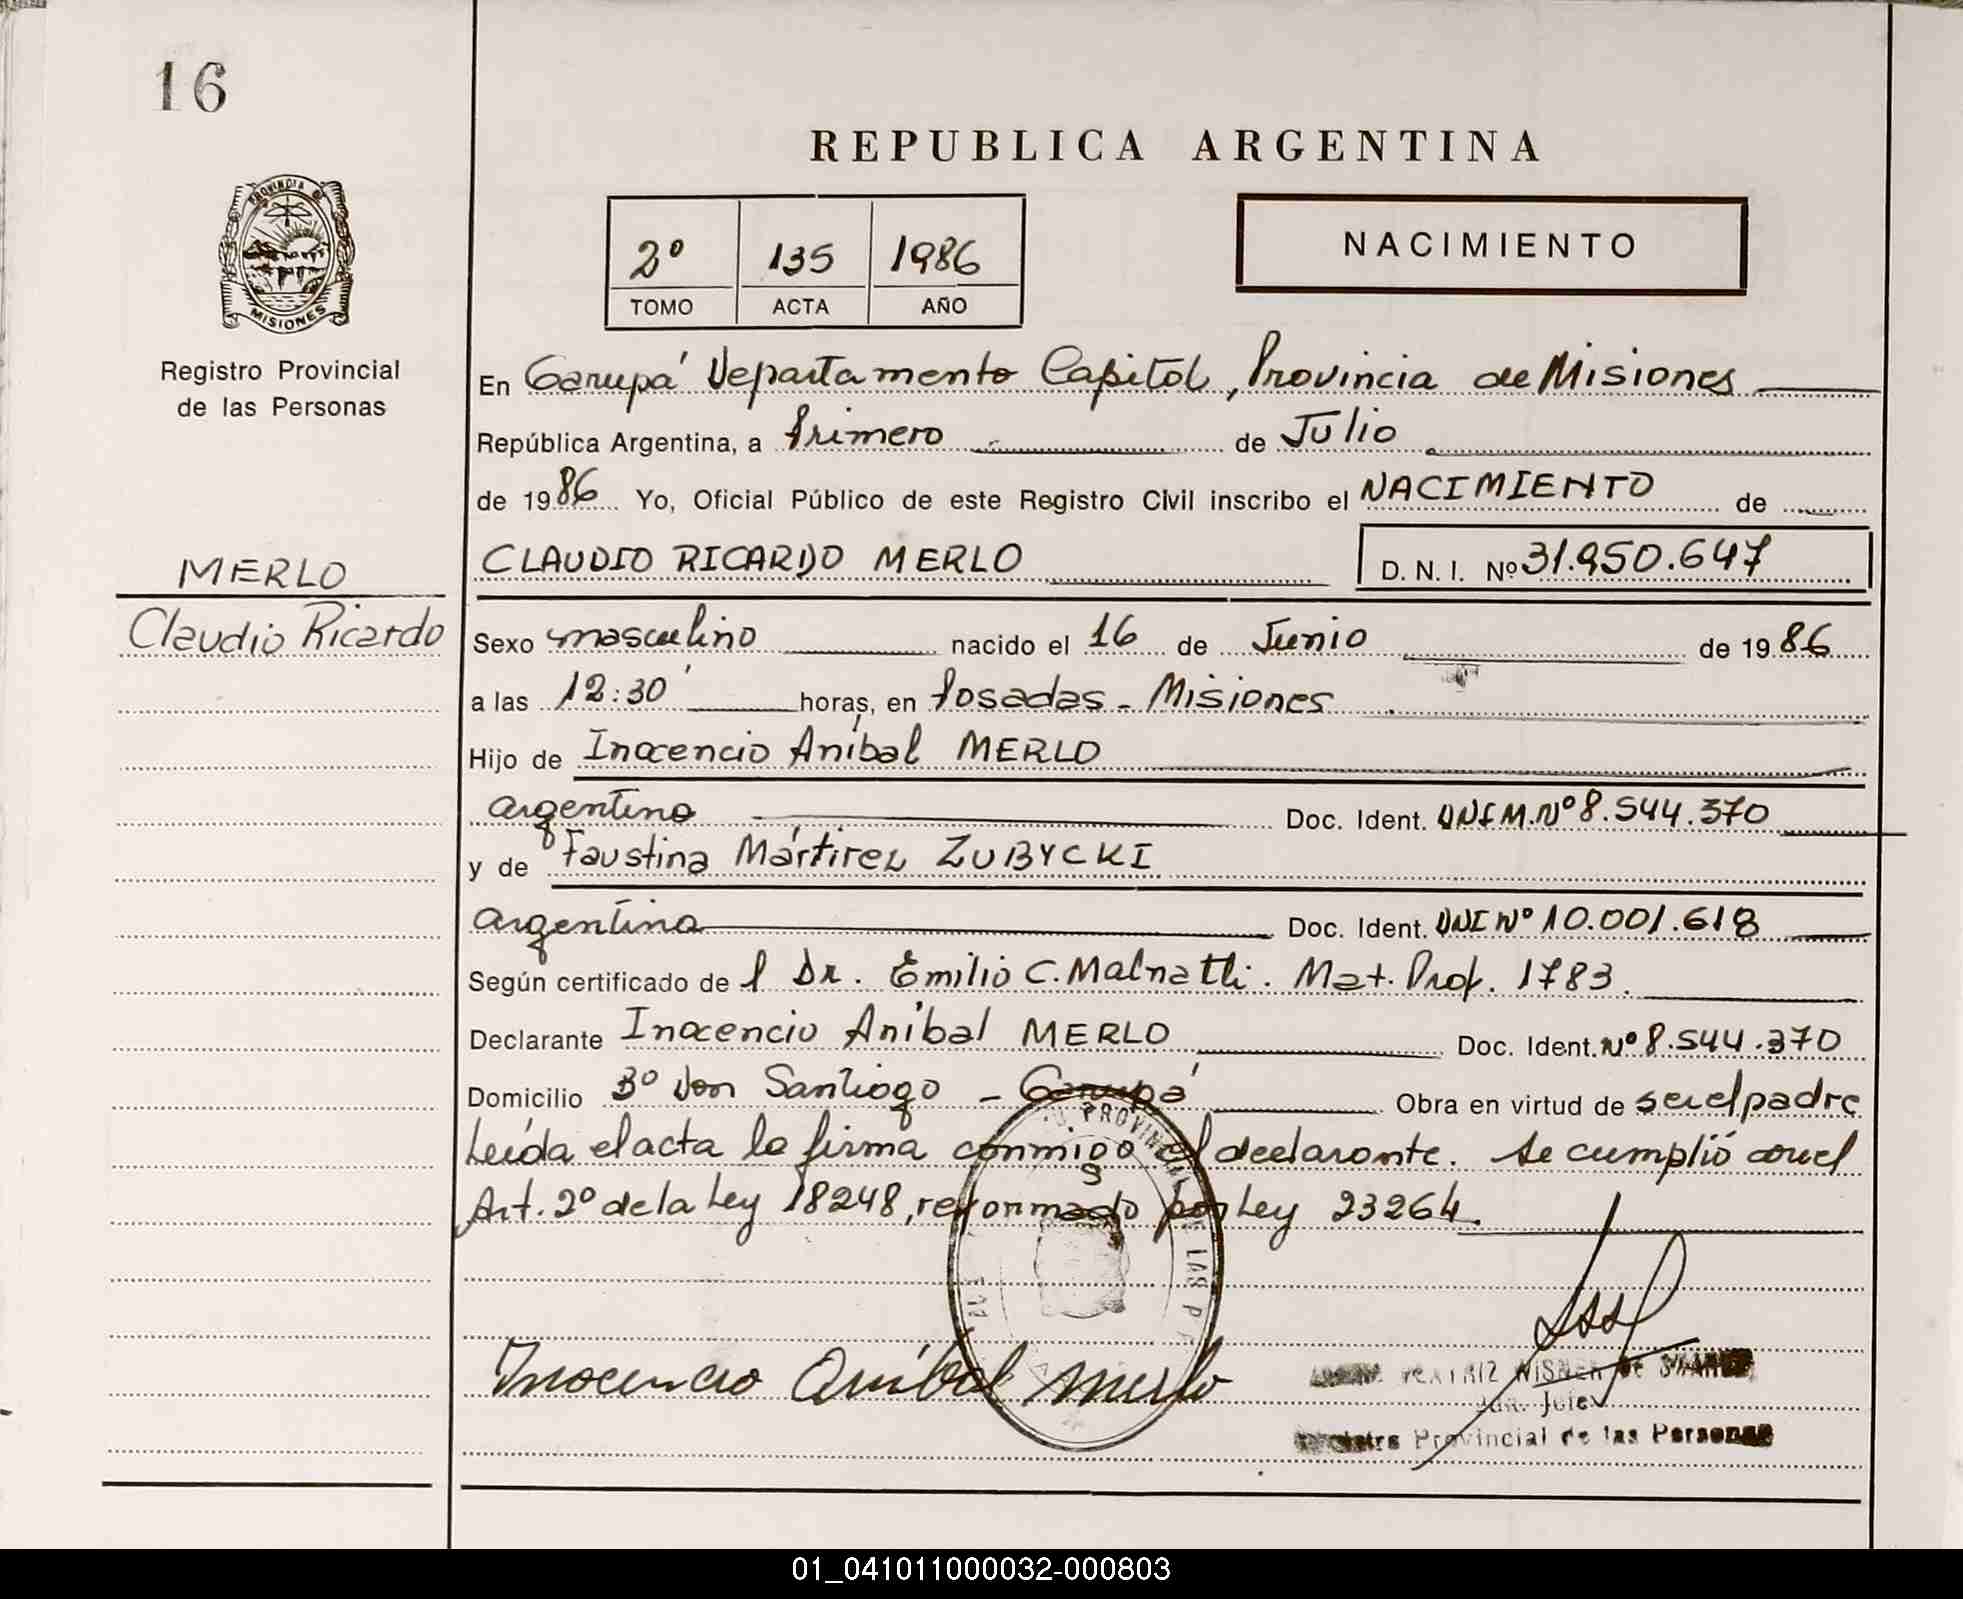 16
REPUBLICA ARGENTINA
PROVINCIA DE
MISIONES
2º 135 1986
TOMO ACTA AÑO
NACIMIENTO
Registro Provincial
de las Personas
En Garupá Departamento Capital, Provincia de Misiones
República Argentina, a Primero de Julio
de 1986 Yo, Oficial Público de este Registro Civil inscribo el NACIMIENTO de
MERLO
Claudio Ricardo
CLAUDIO RICARDO MERLO D. N. I. Nº 31.950.647
Sexo masculino nacido el 16 de Junio de 1986
a las 12:30 horas, en Posadas - Misiones
Hijo de Inocencio Aníbal MERLO
argentino Doc. Ident. DNI M.Nº 8.544.370
y de Faustina Mártirez ZUBYCKI
argentina Doc. Ident. DNI Nº 10.001.618
Según certificado de l Dr. Emilio C. Malnatti. Mat. Prof. 1783.
Declarante Inocencio Aníbal MERLO Doc. Ident. Nº 8.544.370
Domicilio Bº Don Santiago - Garupá Obra en virtud de ser el padre
Leída el acta la firma conmigo el declarante. Se cumplió con el
Art. 2º de la Ley 18248, reformado por Ley 23264.
Inocencio Aníbal Merlo
WISNER DE
Jefe
Provincial de las Personas
01_041011000032-000803